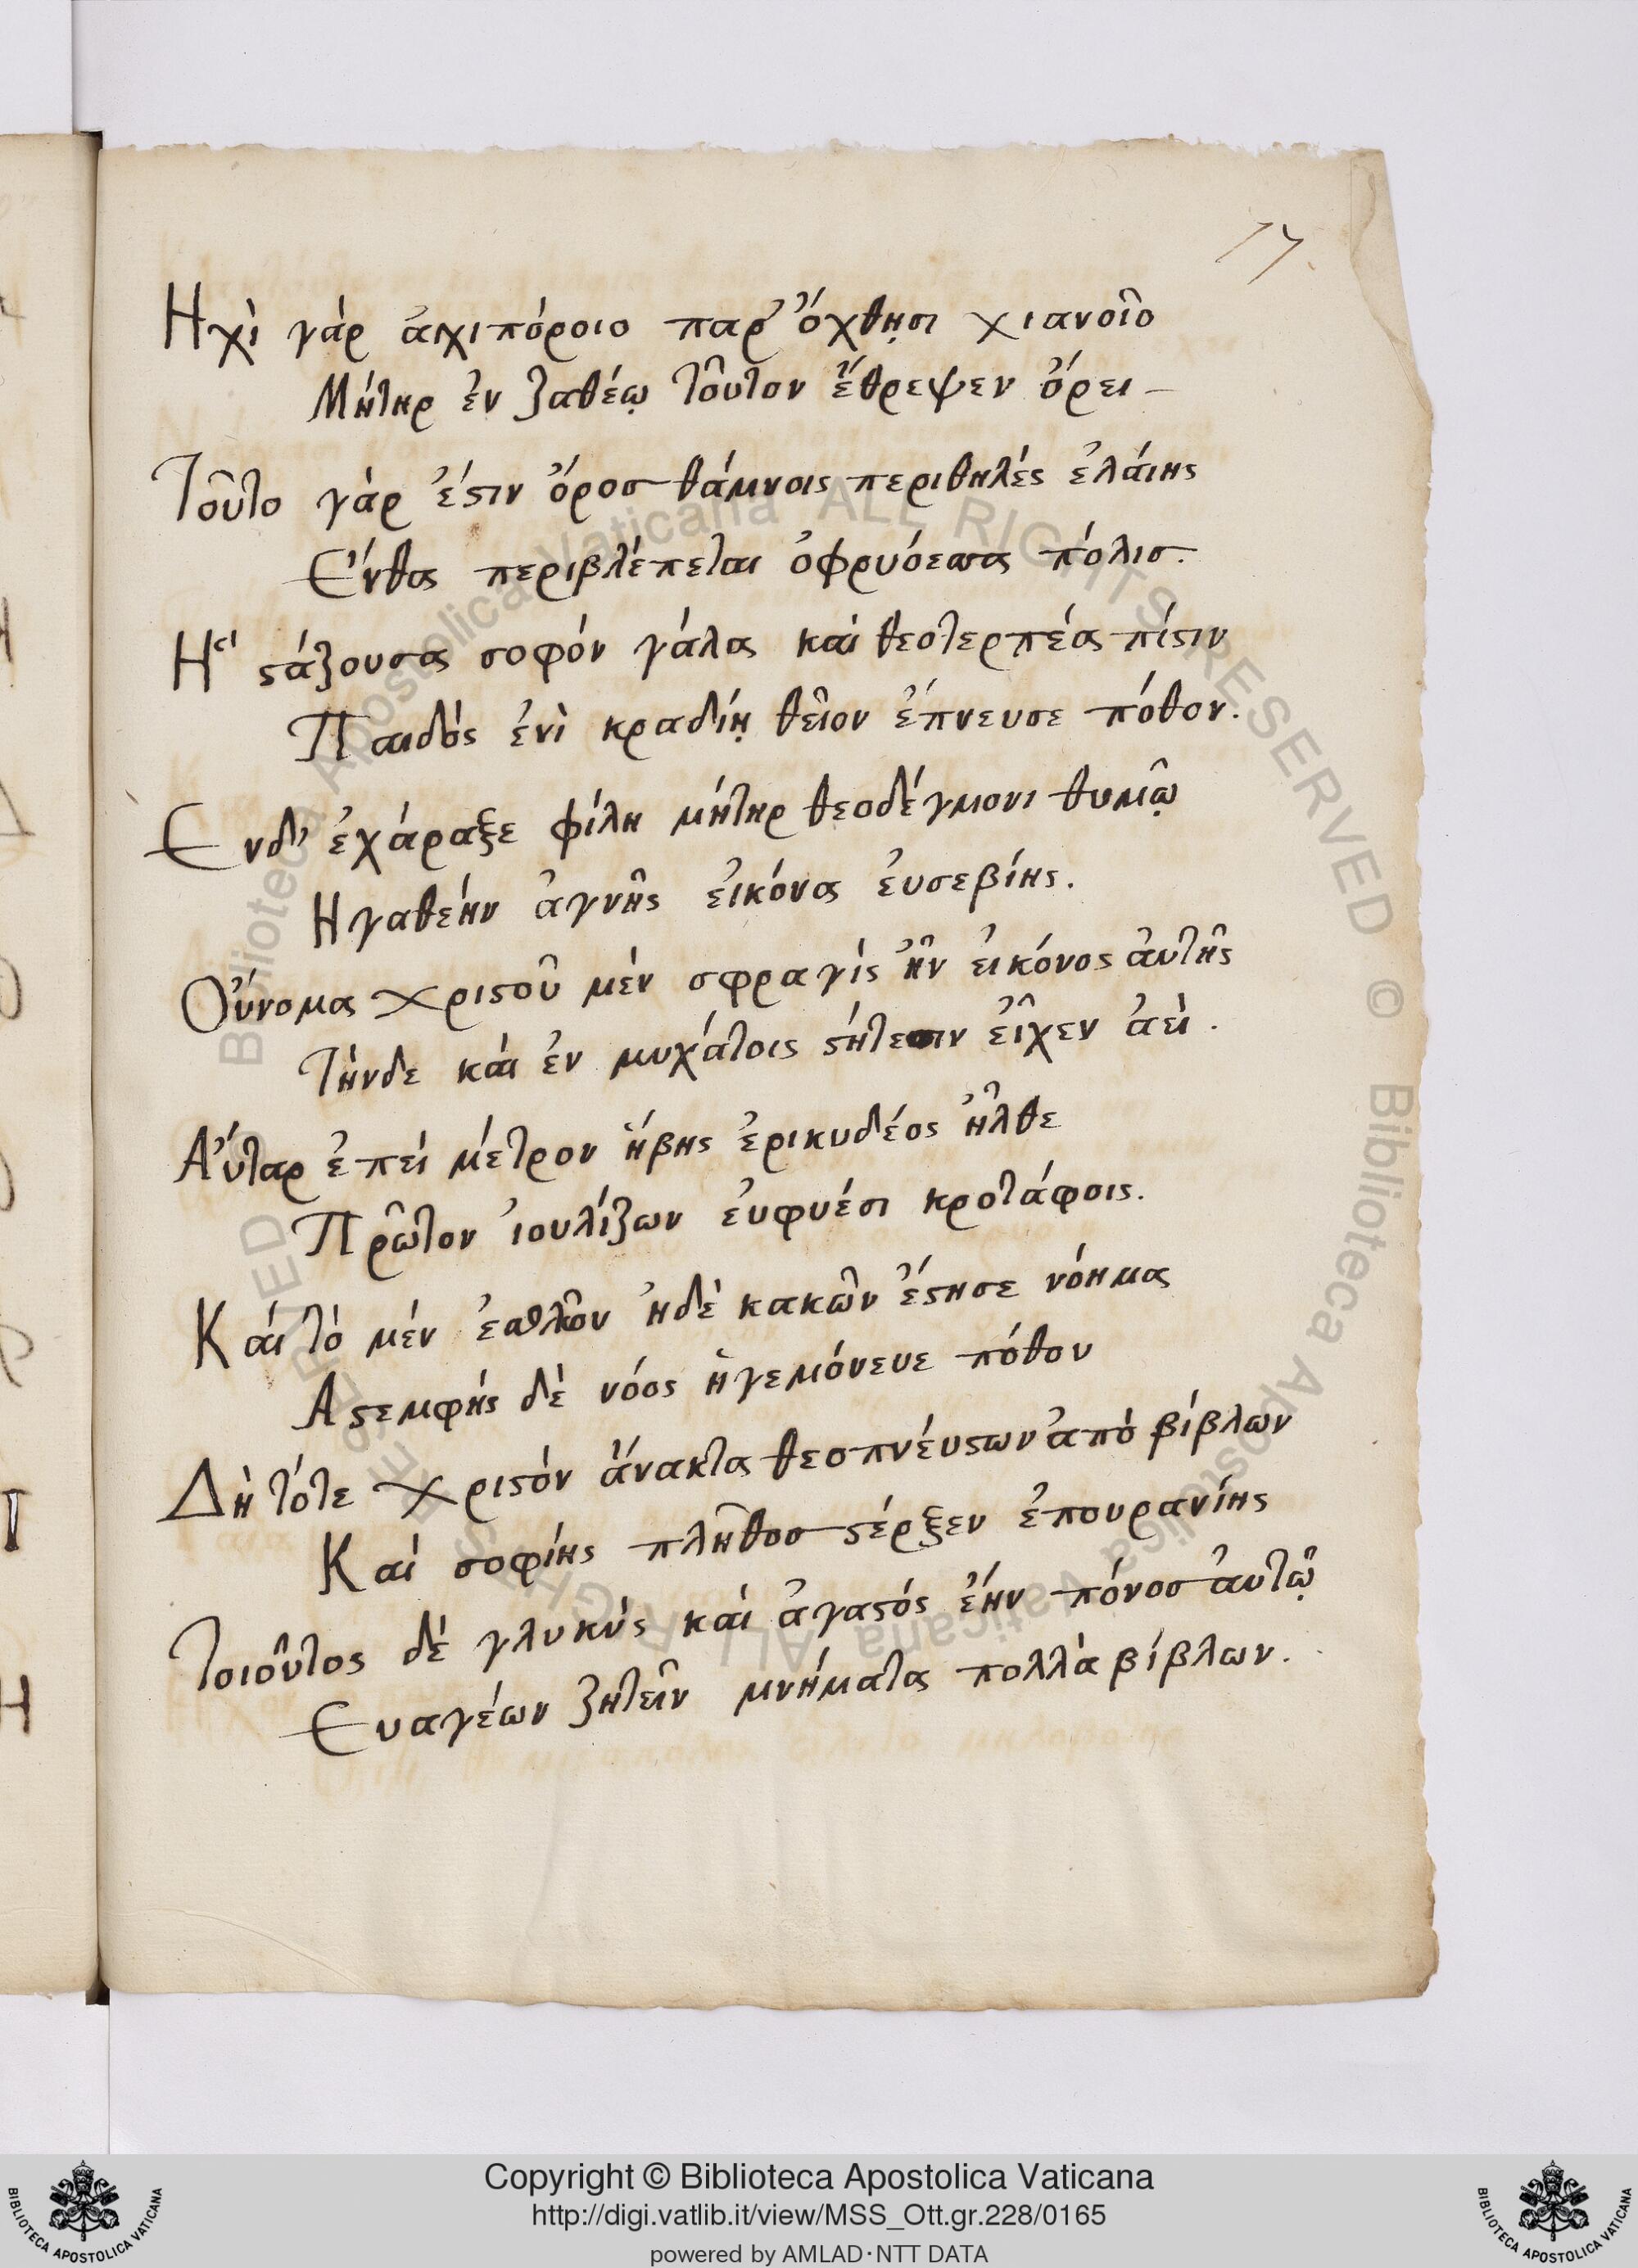 17.
Ηχὶ γάρ ἀιχιπόροιο παρ' ὄχθησι χιανοῖο
Μήτηρ ἐν ζαθέῳ τοῦτον ἔθρεψεν ὄρει –
Τοῦτο γὰρ ἐστιν ὄροσ θάμνοις περιθηλές ἐλάιης
Ενθα περιβλέπεται ὀφρυόεσσα πόλισ.
Η στάζουσα σοφόν γάλα καὶ θεοτερπέα πίστιν
Παιδός ἐνὶ κραδίῃ θεῖον ἔπνευσε πόθον.
Ενδ' ἐχάραξε φίλη μήτηρ θεοδέγμονι θυμῷ
Ηγαθεήν ἁγνῆς εἰκόνα ἐυσεβίης.
Οὔνομα χριστοῦ μὲν σφραγίς ἦν εἰκόνος ἀυτῆς
Τὴνδε καὶ ἐν μυχάτοις στήτεσιν εἶχεν ἀεὶ.
Αὔταρ ἐπεὶ μέτρον ἥβης ἐρικυδέος ἦλθε
Πρῶτον ἰουλίζων ἐυφυέσι κροτάφοις.
Κάι τὸ μὲν ἐσθλῶν ἠδὲ κακῶν ἔστησε νόημα
Αστεμφής δὲ νόος ἡγεμόνευε πόθου
Δὴ τότε χριστὸν ἄνακτα θεοπνέυστων ἀπὸ βίβλων
Καὶ σοφίης πλῆθοσ στέρξεν ἐπουρανίης
Τοιοῦτος δὲ γλυκύς καὶ ἀγαστός ἔην πόνοσ ἀυτῷ
Ευαγέων ζητεῖν μνήματα πολλὰ βίβλων.
Copyright © Biblioteca Apostolica Vaticana
http://digi.vatlib.it/view/MSS_Ott.gr.228/0165
powered by AMLAD·NTT DATA
BIBLIOTECA APOSTOLICA VATICANA
BIBLIOTECA APOSTOLICA VATICANA
© Biblioteca Apostolica Vaticana ALL RIGHTS RESERVED © Biblioteca Apostolica Vaticana ALL RIGHTS RESERVED